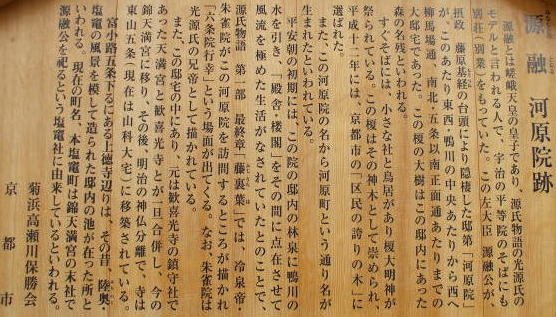 源融 河原院跡
源融とは嵯峨天皇の皇子であり、源氏物語の光源氏の
モデルと言われる人で、宇治の平等院のそばにも
別荘(別業)をもっていた。この左大臣 源融公が、
摂政 藤原基経の台頭により隠棲した邸第「河原院」
が、このあたり東西・鴨川の中央あたりから西へ
柳馬場通、南北・五条以南正面通あたりまでの
大邸宅であった。この榎の大樹はこの邸内にあった
森の名残といわれる。
すぐそばには、小さな社と鳥居があり榎大明神が
祭られている。この榎はその神木として崇められ、
平成十二年には、京都市の「区民の誇りの木」に
選ばれた。
また、この河原院の名から河原町という通り名が
生まれたといわれている。
平安朝の初期には、この院の邸内の林泉に鴨川の
水を引き、「殿舎・楼閣」をその間に点在させて
風流を極めた生活がなされていたとのことで、
源氏物語 第一部 最終章「藤裏葉」では、冷泉帝・
朱雀院がこの河原院を訪問するところが描かれ
「六条院行幸」という場面が出てくる。なお 朱雀院は
光源氏の兄帝として描かれている。
また、この邸宅の中にあり、元は歓喜光寺の鎮守社で
あった天満宮と歓喜光寺とが一旦合併し、今の
錦天満宮に移り、その後、明治の神仏分離で、寺は
東山五条(現在は山科大宅)に移築されている。
富小路五条下るにある上徳寺辺りは、その昔、陸奥・
塩竈の風景を模して造られた邸内の池が在った所と
いわれる。現在の町名、本塩竈町は錦天満宮の末社で
源融公を祀るという塩竈社に由来しているといわれる。
菊浜高瀬川保勝会
京都市